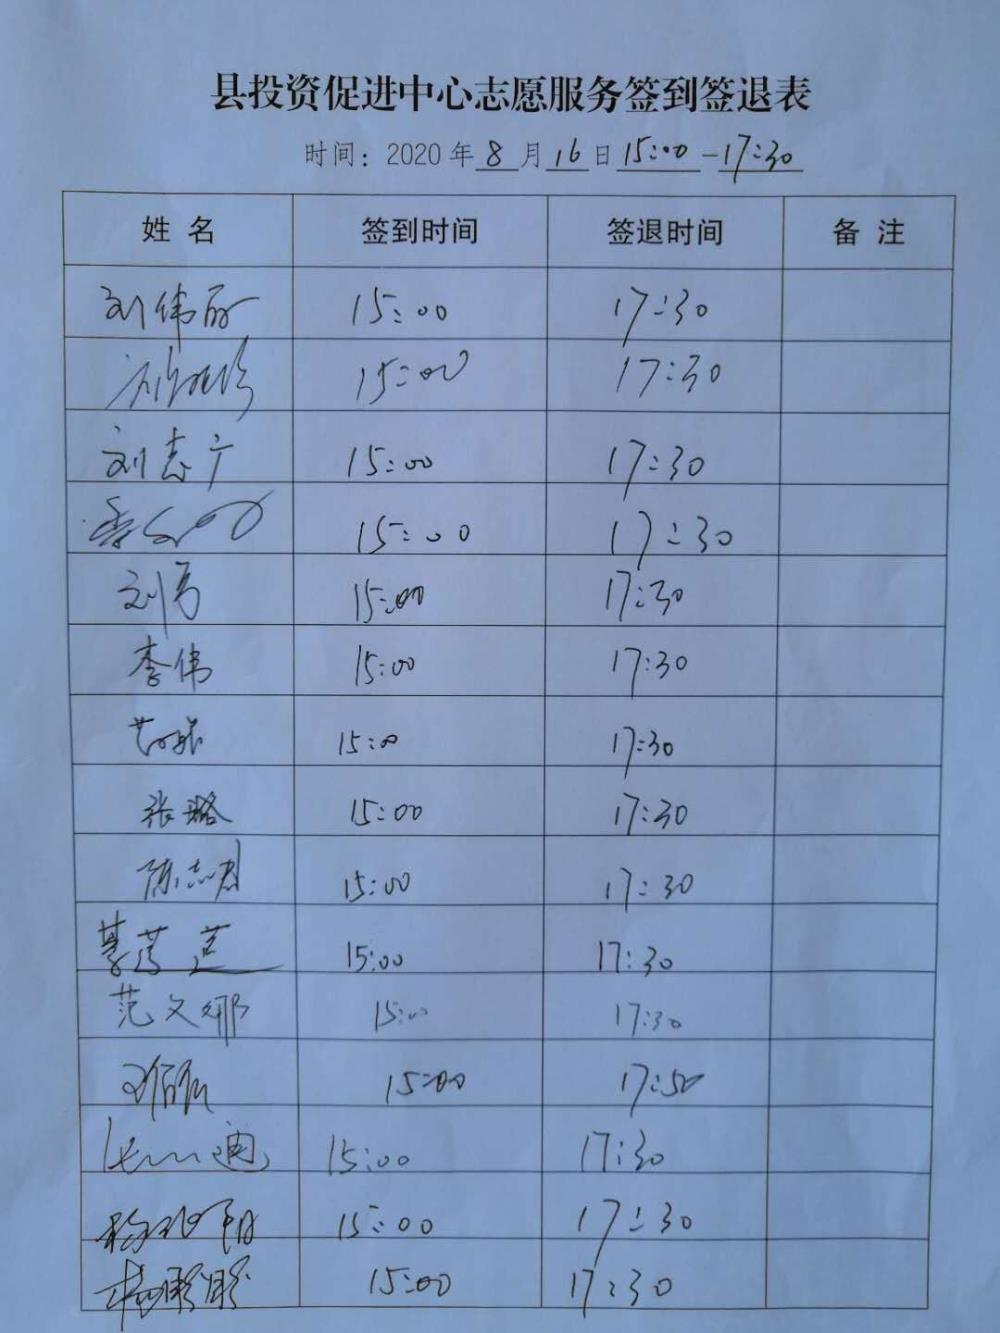 县投资促进中心志愿服务签到签退表
时间：2020年8月16日15:00-17:30
姓名 签到时间 签退时间 备注
刘伟 15:00 17:30
15:00 17:30
刘志广 15:00 17:30
15:00 17:30
刘勇 15:00 17:30
李伟 15:00 17:30
15:00 17:30
张璐 15:00 17:30
陈志君 15:00 17:30
15:00 17:30
范文娜 15:00 17:30
15:00
15:00 17:30
15:00 17:30
杨彤彤 15:00 17:30